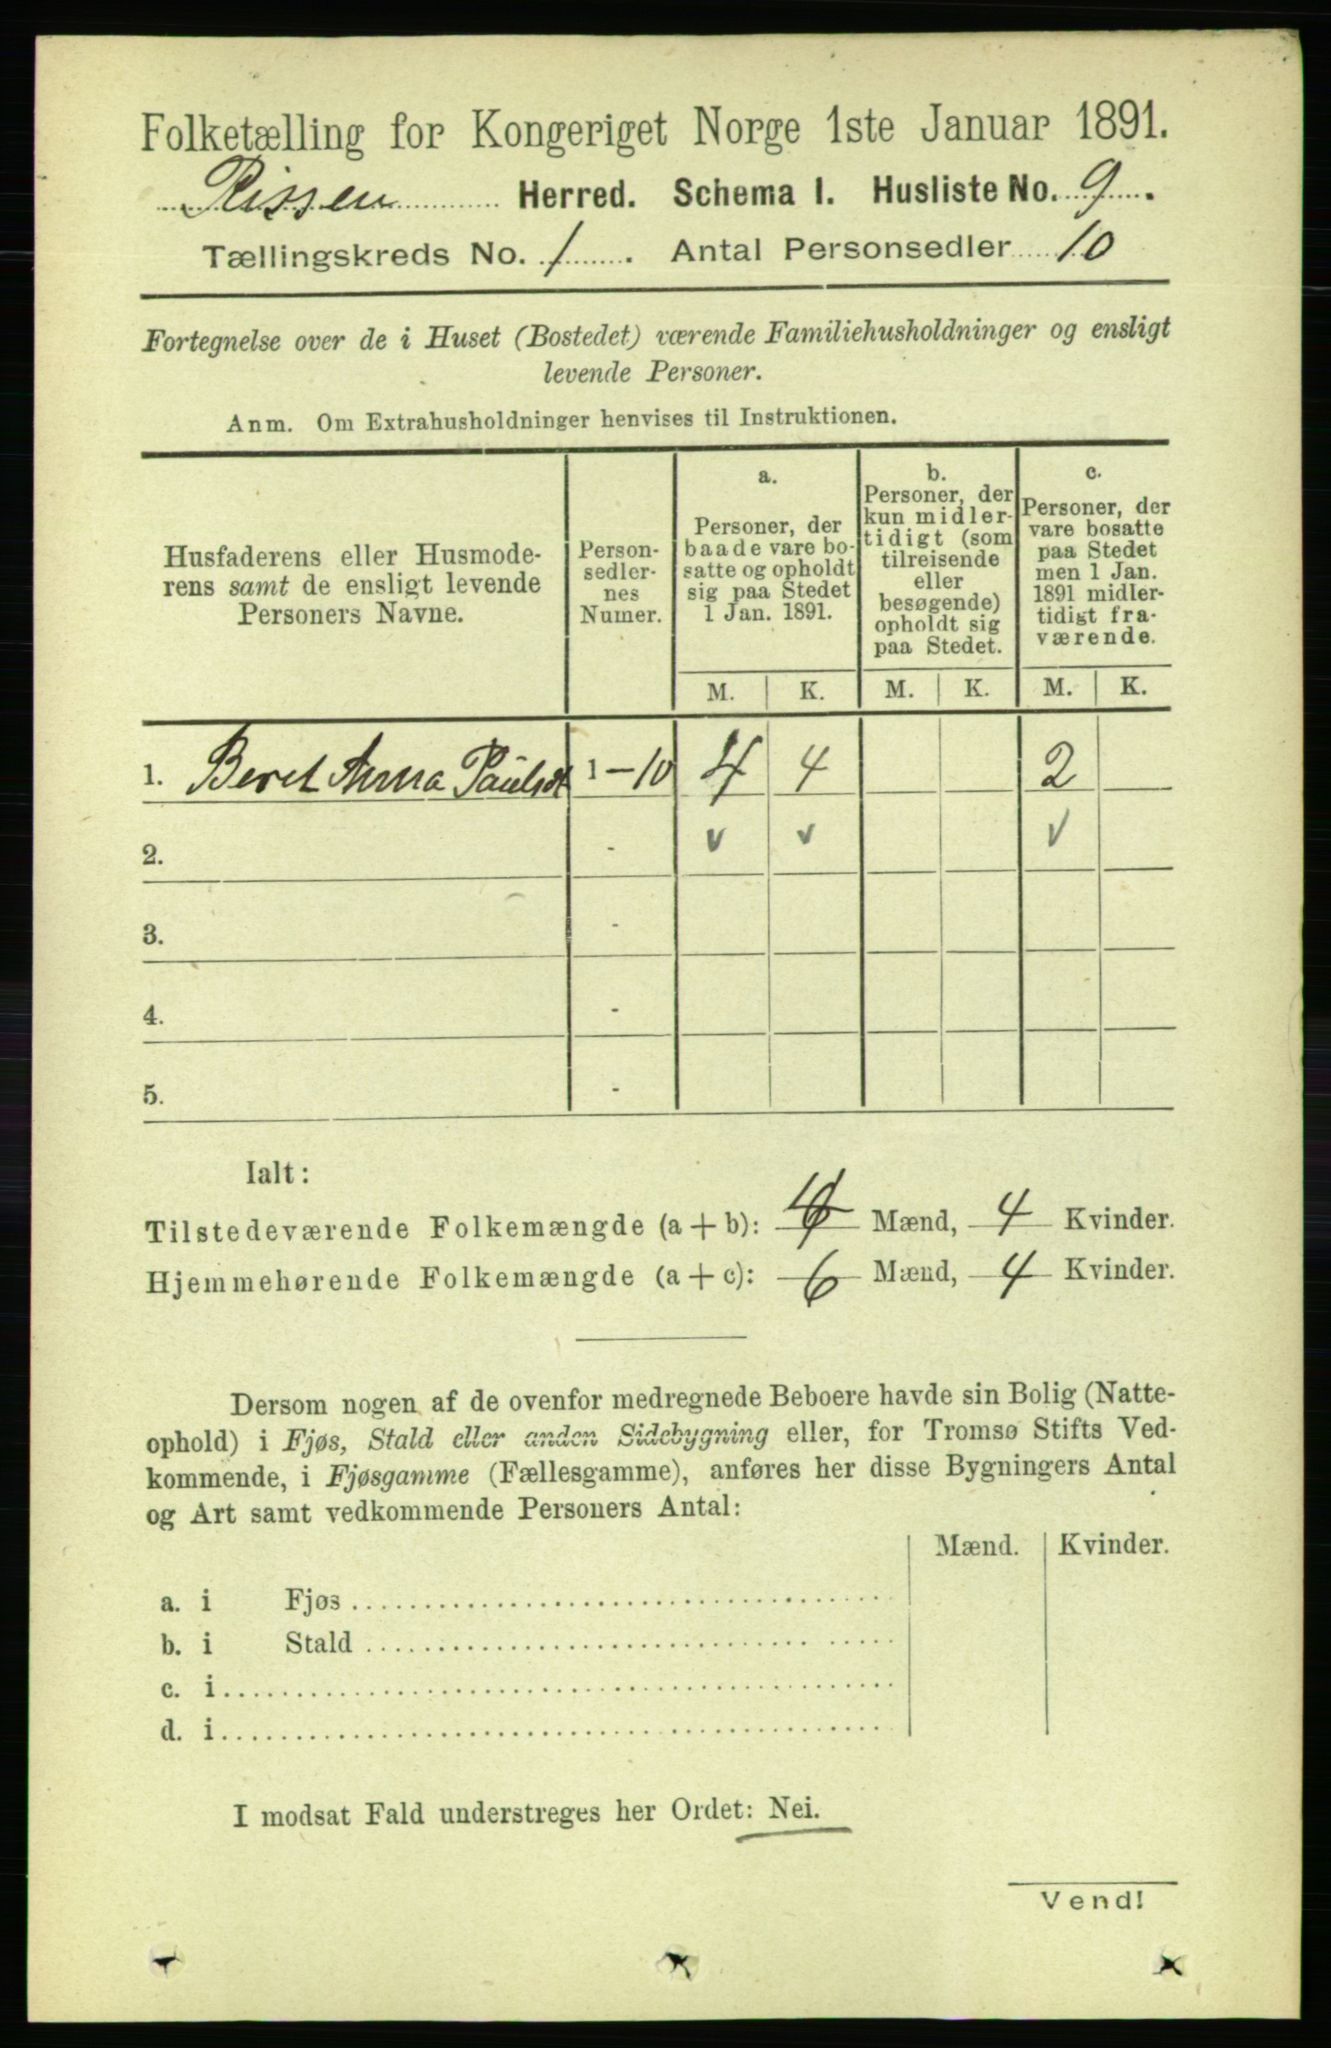 Folketælling for Kongeriget Norge 1ste Januar 1891.
Rissen Herred. Schema I. Husliste No. 9.
Tællingskreds No. 1. Antal Personsedler 10
Fortegnelse over de i Huset (Bostedet) værende Familiehusholdninger og ensligt
levende Personer.
Anm. Om Extrahusholdninger henvises til Instruktionen.
Husfaderens eller Husmode-
rens samt de ensligt levende
Personers Navne.
Person-
sedler-
nes
Numer.
a.
Personer, der
baade vare bo-
satte og opholdt
sig paa Stedet
1 Jan. 1891.
b.
Personer, der
kun midler-
tidigt (som
tilreisende
eller
besøgende)
opholdt sig
paa Stedet.
c.
Personer, der
vare bosatte
paa Stedet
men 1 Jan.
1891 midler-
tidigt fra-
værende.
M. K. M. K. M. K.
1. Beret Anna Paulsdt 1-10 4 4 2
2. - v v v
3. -
4. -
5. -
Ialt:
Tilstedeværende Folkemængde (a + b): 4 Mænd, 4 Kvinder.
Hjemmehørende Folkemængde (a + c): 6 Mænd, 4 Kvinder.
Dersom nogen af de ovenfor medregnede Beboere havde sin Bolig (Natte-
ophold) i Fjøs, Stald eller anden Sidebygning eller, for Tromsø Stifts Ved-
kommende, i Fjøsgamme (Fællesgamme), anføres her disse Bygningers Antal
og Art samt vedkommende Personers Antal:
Mænd. Kvinder.
a. i Fjøs
b. i Stald
c. i
d. i
I modsat Fald understreges her Ordet: Nei.
Vend!